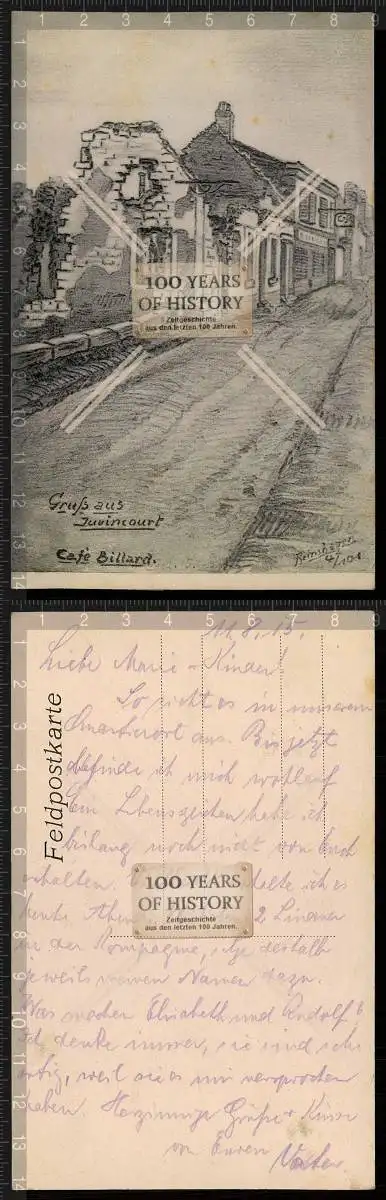 100 YEARS
OF HISTORY
Zeitgeschichte
aus den letzten 100 Jahren.
Gruß aus
Juvincourt
Café Billard.
4/101
Feldpostkarte
11.8.15.
Liebe Marie u. Kinder!
So sieht es in unserem
Quartierort aus. Bis jetzt
befinde ich mich wohlauf
Ein Lebenszeichen habe ich
bislang noch nicht von Euch
erhalten. ich es
heute 2
in der Kompagnie, deshalb
jeweils meinen Namen dazu.
Was machen Elisabeth und Rudolf?
Ich denke immer, sie sind sehr
artig, weil sie es mir versprochen
haben. Herzinnige Grüße u. Küsse
von Eurem Vater
100 YEARS
OF HISTORY
Zeitgeschichte
aus den letzten 100 Jahren.